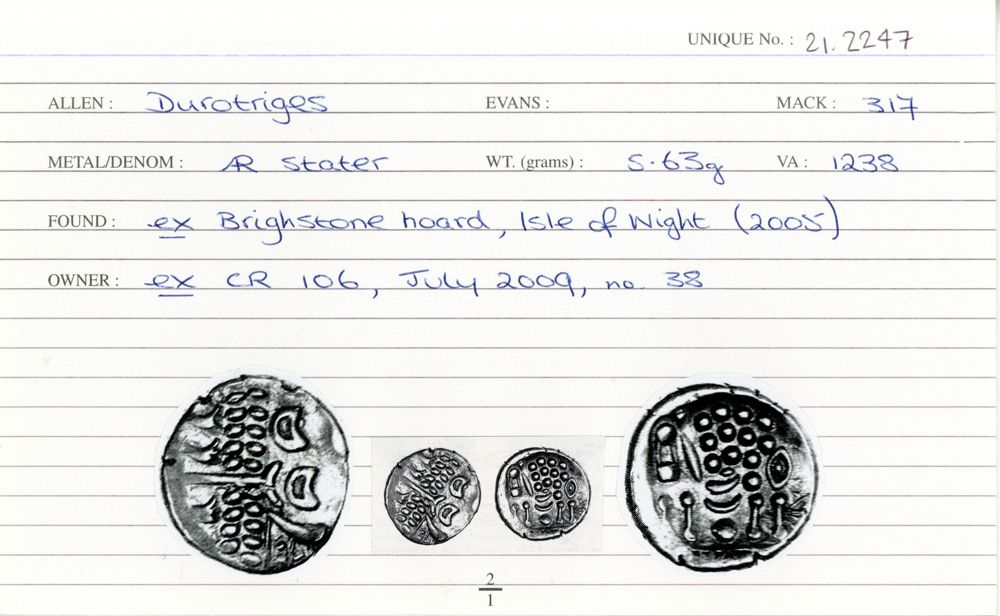 UNIQUE No. : 21.2247
ALLEN : Durotriges EVANS : MACK : 317
METAL/DENOM : AR Stater WT. (grams) : 5.63g VA : 1238
FOUND : ex Brighstone hoard, Isle of Wight (2005)
OWNER : ex CR 106, July 2009, no. 38
2
1